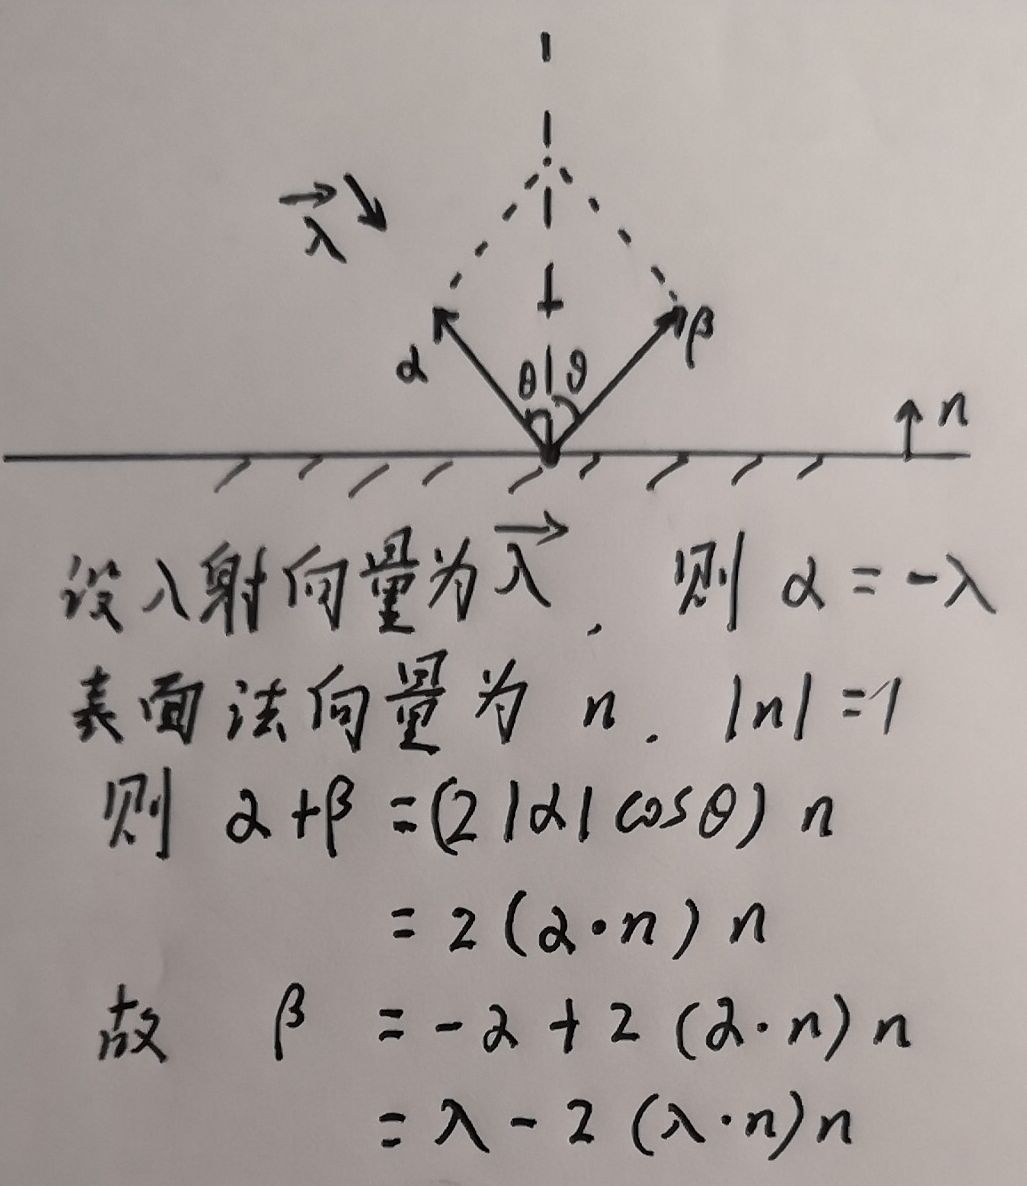 λ⃗
α
θ
θ
β
n
设入射向量为λ⃗, 则 α = -λ
表面法向量为 n. |n| = 1
则 α+β = (2|α|cosθ) n
= 2(α·n) n
故 β = -α + 2(α·n) n
= λ - 2(λ·n)n